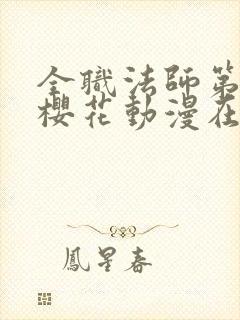 全職法師第
櫻花動漫在
鳳星春